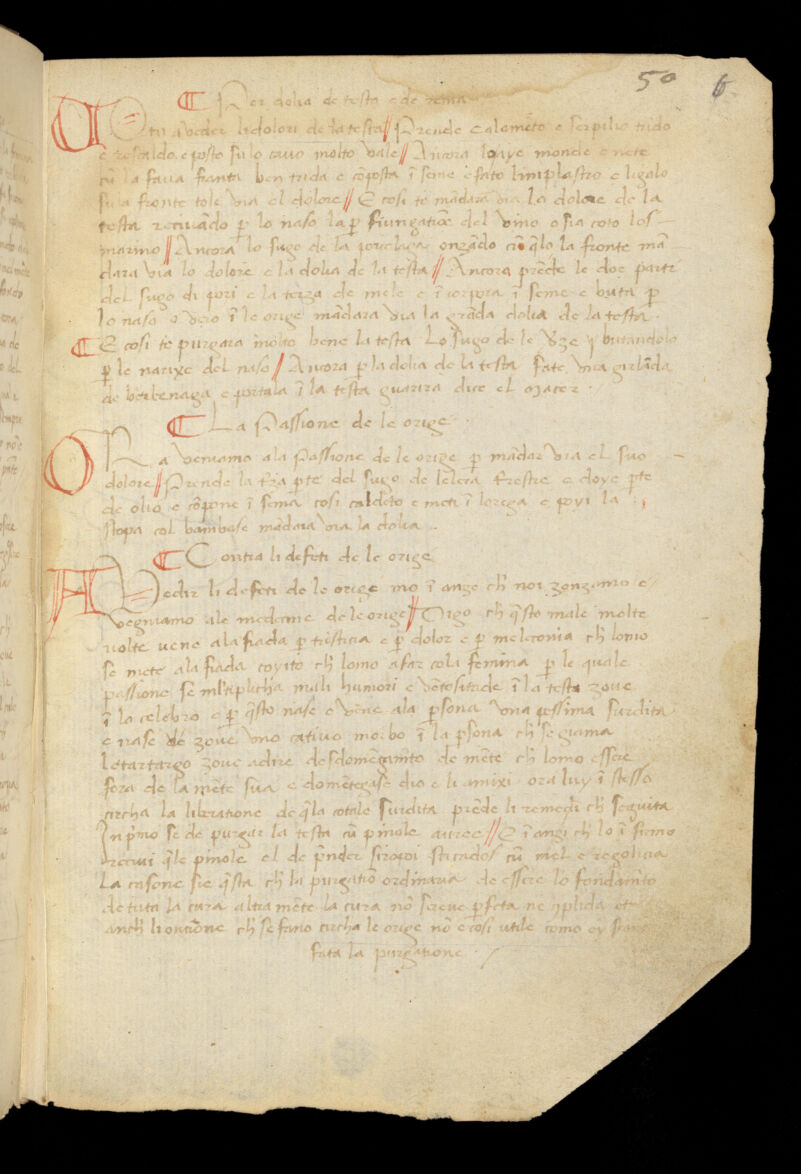 50 6
¶ Per dolia de testa e de rema
A Vo tu veder li dolori de la testa // Prende Calamēto e serpilio trido
e rescaldo e posto su lo cavo molto vale // Ancora l monde e nete
cū la fava franta ben trida e cōposta ī seme e fato limplastro e ligalo
su la fronte tole via el dolore // E cosi te mādara via lo dolore de la
testa recivādo p lo naso la p del vino o sia coto los
marino // Ancora lo sugo de la porcelaga onzādo cū q̄lo la fronte mā
dara via lo dolore e la dolia de la testa // Ancora prēde le doe parti
del sugo di pori e la terza de mele e īcorpora ī seme e buta p
lo naso o vero ī le orige mādara via la grāda dolia de la testa.
¶ E cosi te purgara molto bene la testa Lo sugo de le butandolo
p le narixe del naso // Ancora p la dolia de la testa fate una girlāda
de berbenaga e portala ī la testa guarira dice el Macer ./
¶ La Passione de le orige
O Ra veniamo ala Passione de le orige p mādar via el suo
dolore // Prende la pte del sugo de frestre e doye pte
de olio e cōpone ī semā cosi caldeto e meti ī lorega e poyi la
stopa col bambase mādara via la dolia.
¶ Contra li defeti de le orige
A Vedir li defeti de le orige mo ī ange ch noi zonzamo e
vegniamo ale medecine de le orige // Digo ch q̄sto male molte
volte vene ala fiada p tristicia e p dolor e p melēconia ch lomo
se mete ala fiada coyito ch lomo a far cola femina p le quale
passione se mltiplicha mali humori e vētositade ī la testa zoue
ī la celebro e p q̄sto nase e vēne ala psona una pessima surdita
e nase de zoue uno cativo morbo ī la psona ch se giama
letartargo zoue adire desdomēgamīto de mēte ch lomo essere
fora de la mēte sua e domētegase dio e li amixi ora luy ī stesso
circha la liberatione de q̄la cotale surdita prēde li remedii ch seguita
In pmo se de purgar la testa cū pinole auree // E ī angi ch lo ī firmo
recevi q̄le pinole el de prnder siropi sticados cū mel e regolicia
La casone sie q̄sta ch la purgatiō ordinaria de essere lo fondamīto
de tuta la cura altra mēte la cura nō sereve pfeta ne
anch li ontiōne ch se fano circha le orige nō e cosi utile como
fata la purgatione ./